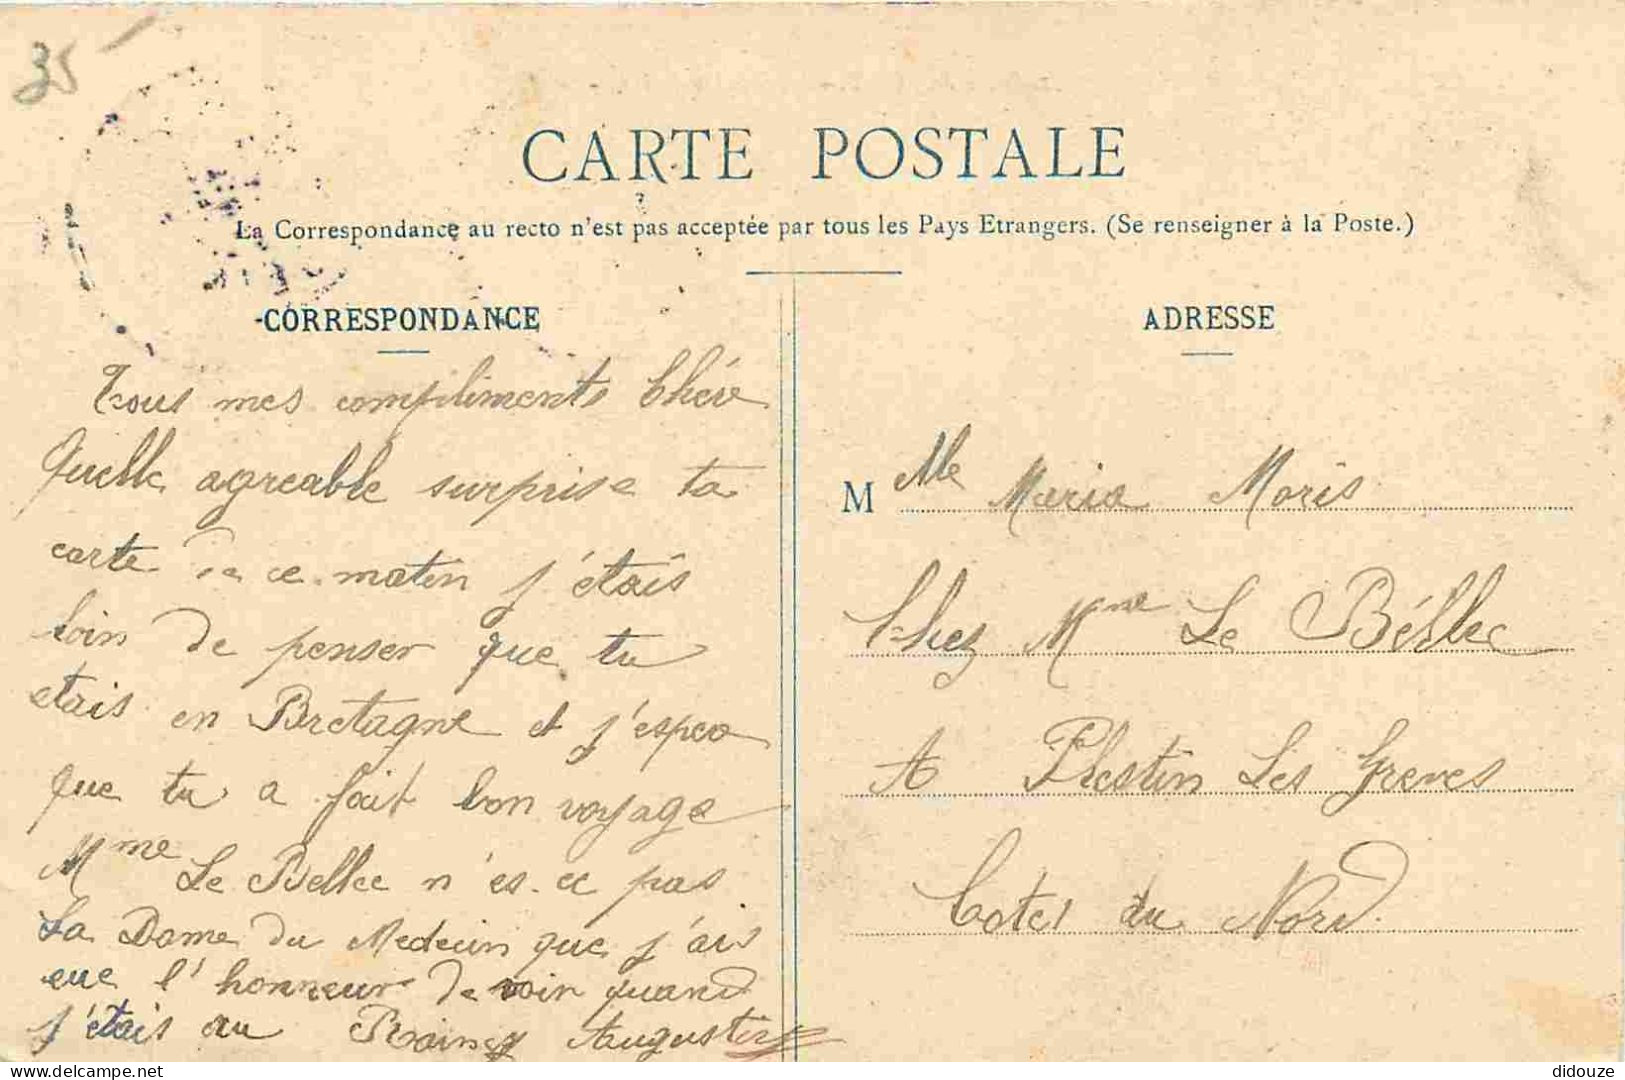 35
CARTE POSTALE
La Correspondance au recto n'est pas acceptée par tous les Pays Etrangers. (Se renseigner à la Poste.)
CORRESPONDANCE
ADRESSE
Tous mes compliments Chére
Quelle agreable surprise ta
carte de ce matin j'étais
loin de penser que tu
etais en Bretagne et j'espere
que tu a fait bon voyage
Mme Le Bellec n'es-ce pas
La Dame du Medecin que j'ais
eue l'honneur de voir quand
j'étais au Raincy Augustin
M elle Maria Moris
Chez Mme Le Béllec
A Plestin Les Greves
Cotes du Nord
didouze
delcampe.net